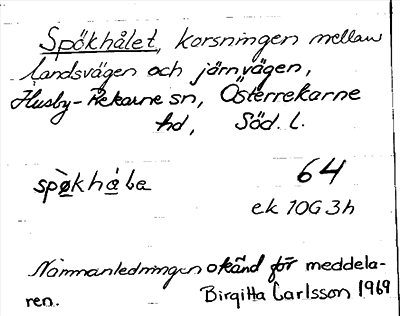 Spökhålet, korsningen mellan
landsvägen och järnvägen,
Husby-Rekarne sn, Österrekarne
hd, Söd. l.
spø̀khå̀la 64
ek 10G 3h
Namnanledningen okänd för meddela-
ren. Birgitta Carlsson 1969